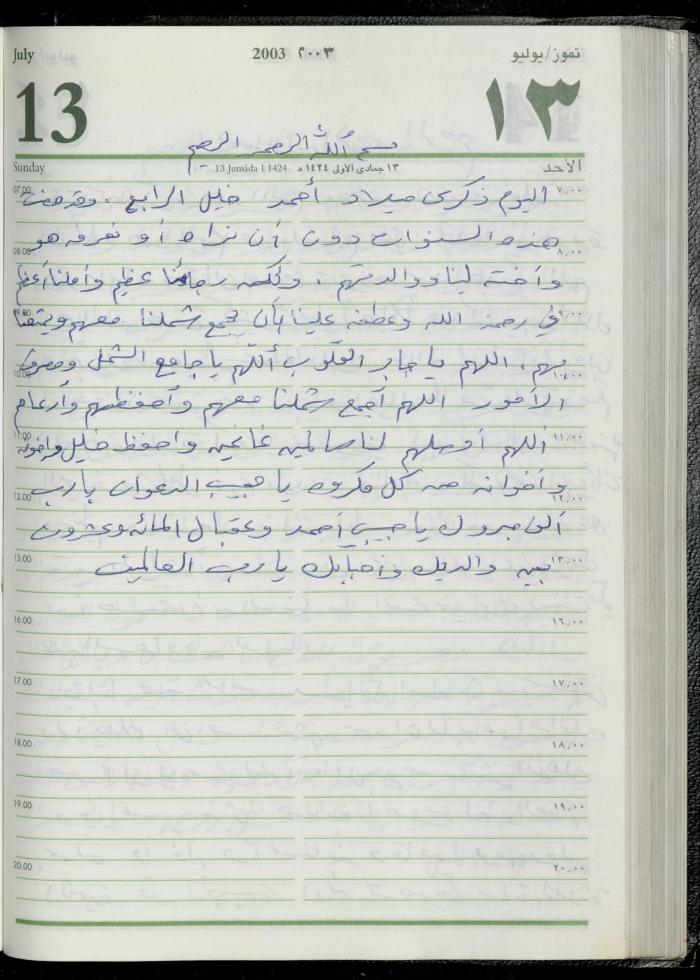 July 2003 ٢٠٠٣ تموز/يوليو
13 ١٣
بسم الله الرحمن الرحيم
Sunday 13 Jumada I 1424 ١٣ جمادى الأولى ١٤٢٤ هـ الأحد
07.00 اليوم ذكرى ميلاد أحمد خليل الرابع، وقد مضت ٧,٠٠
هذه السنوات دون أن نراه أو نعرفه هو
08.00 ٨,٠٠
وأخته لينا ووالديهم، ولكن رجائنا عظيم وأملنا أعظم
09.00 في رحمة الله وعطفه علينا بأن يجمع شملنا معهم ويمتعنا ٩,٠٠
بهم، اللهم يا جابر القلوب اللهم يا جامع الشمل ومصرف
10.00 ١٠,٠٠
الأمور اللهم أجمع شملنا معهم وأحفظهم وأرعاهم
11.00 اللهم أوصلهم لنا سالمين غانمين واحفظ خليل وأخوته ١١,٠٠
وأخوانه من كل مكروه يا مجيب الدعوات يا رب
12.00 ١٢,٠٠
ألف مبروك يا حبيبي أحمد وعقبال المائة وعشرون
13.00 بين والديك وأحبابك يا رب العالمين ١٣,٠٠
16.00 ١٦,٠٠
17.00 ١٧,٠٠
18.00 ١٨,٠٠
19.00 ١٩,٠٠
20.00 ٢٠,٠٠